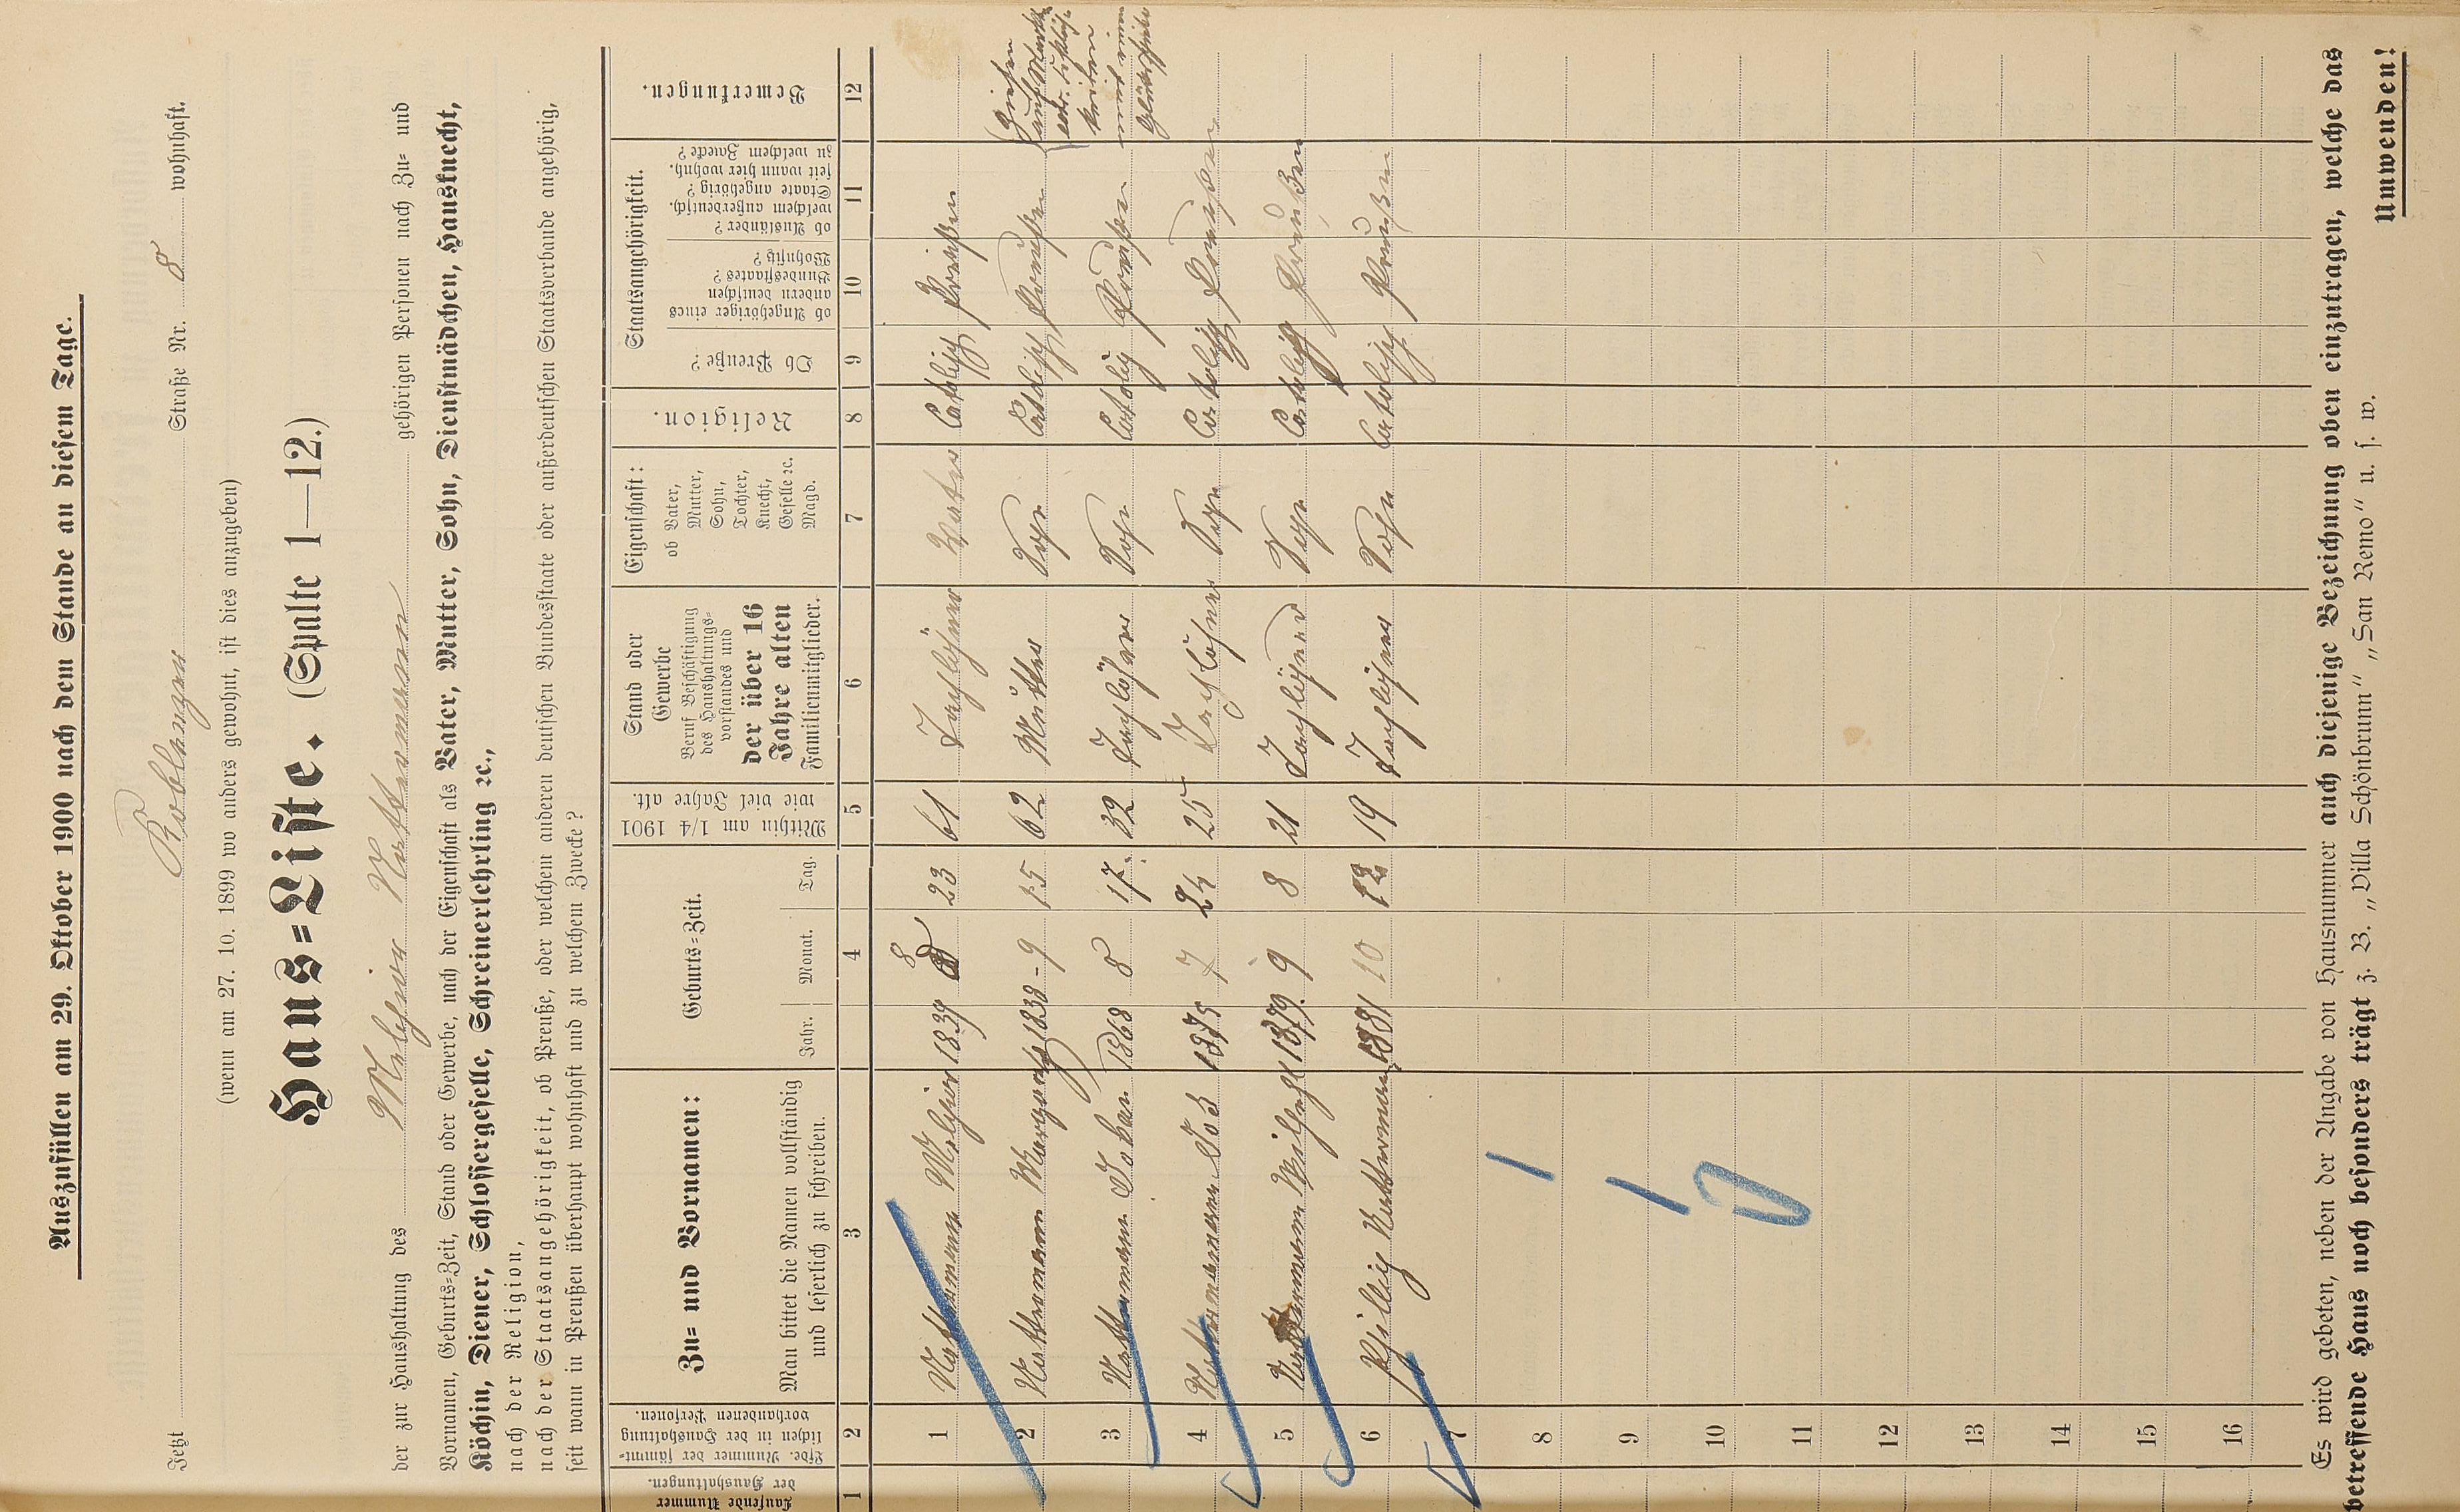 Auszufüllen am 29. Oktober 1900 nach dem Stande an diesem Tage.
Jetzt Koblenzer Straße Nr. 8 wohnhaft.
(wenn am 27. 10. 1899 wo anders gewohnt, ist dies anzugeben)
Haus=Liste. (Spalte 1—12.)
der zur Haushaltung des gehörigen Personen nach Zu= und
Vornamen, Geburts=Zeit, Stand oder Gewerbe, nach der Eigenschaft als Vater, Mutter, Sohn, Dienstmädchen, Hausknecht,
Köchin, Diener, Schlossergeselle, Schreinerlehrling ꝛc.,
nach der Religion,
nach der Staatsangehörigkeit, ob Preuße, oder welchem anderen deutschen Bundesstaate oder außerdeutschen Staatsverbande angehörig,
seit wann in Preußen überhaupt wohnhaft und zu welchem Zwecke?
Laufende Nummer der Haushaltungen.
Lfde. Nummer der sämmtlichen in der Haushaltung vorhandenen Personen.
Zu= und Vornamen:
Man bittet die Namen vollständig
und leserlich zu schreiben.
Geburts=Zeit.
Jahr. Monat. Tag.
Mithin am 1/4 1901
wie viel Jahre alt.
Stand oder
Gewerbe
Beruf Beschäftigung
des Haushaltungs=
vorstandes und
der über 16
Jahre alten
Familienmitglieder.
Eigenschaft:
ob Vater,
Mutter,
Sohn,
Tochter,
Knecht,
Geselle ꝛc.
Magd.
Religion.
Staatsangehörigkeit.
Ob Preuße?
ob Angehöriger eines
andern deutschen
Bundesstaates?
Wohnsitz?
ob Ausländer?
welchem außerdeutsch.
Staate angehörig?
seit wann hier wohnh.
zu welchem Zwecke?
Bemerkungen.
1 2 3 4 5 6 7 8 9 10 11 12
1 1839 8 23 61 Taglöhner Vater Catolisch Preußen
2 1838 - 9 15 62 Mutter Catolisch Preußen
3 Johan 1868 8 17. 32 Taglöhner Sohn Preußen
4 1875 7 24 25 Taglöhner Sohn Preußen
5 1879. 9 8 21 Taglöhner Sohn Preußen
6 1881 10 12 19 Taglöhner Sohn Preußen
7
8
9
10
11
12
13
14
15
16
Es wird gebeten, neben der Angabe von Hausnummer auch diejenige Bezeichnung oben einzutragen, welche das
betreffende Haus noch besonders trägt z. B. „Villa Schönbrunn“ „San Remo“ u. s. w.
Umwenden!